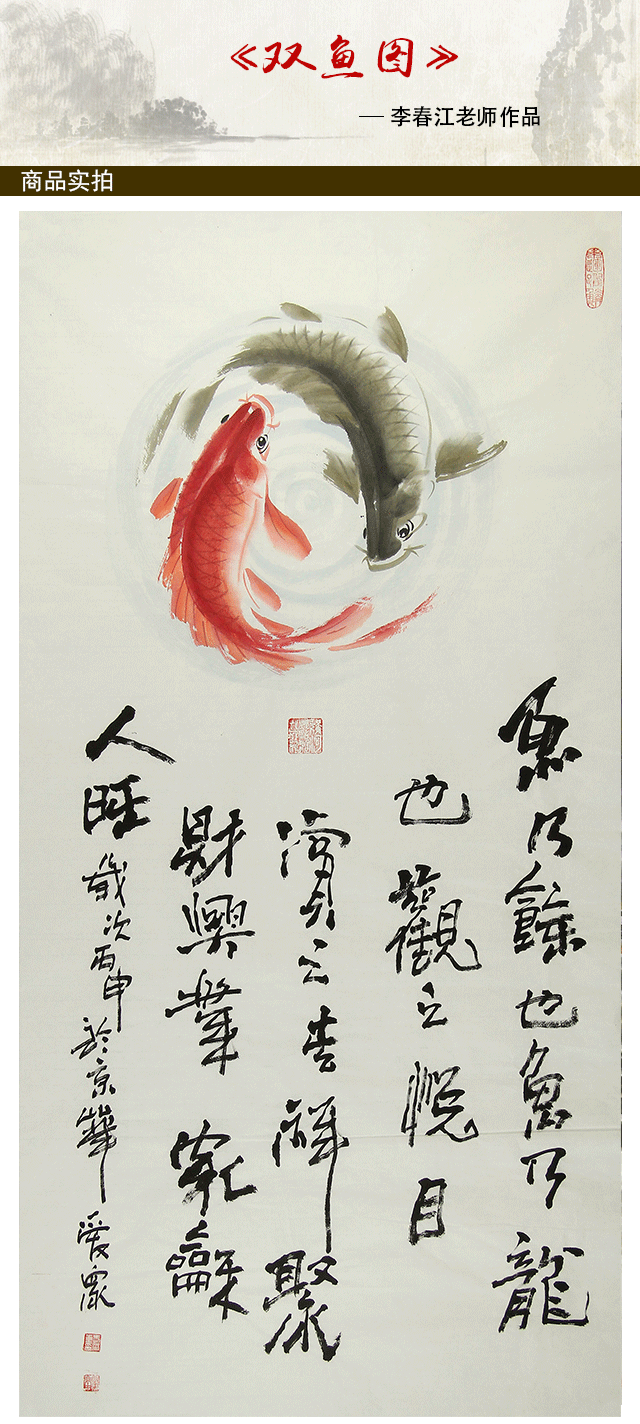 《双鱼图》
— 李春江老师作品
商品实拍
魚乃餘也魚乃龍
也觀之悅目
賞之吉祥聚
財興業家龢
人旺歲次丙申於京華